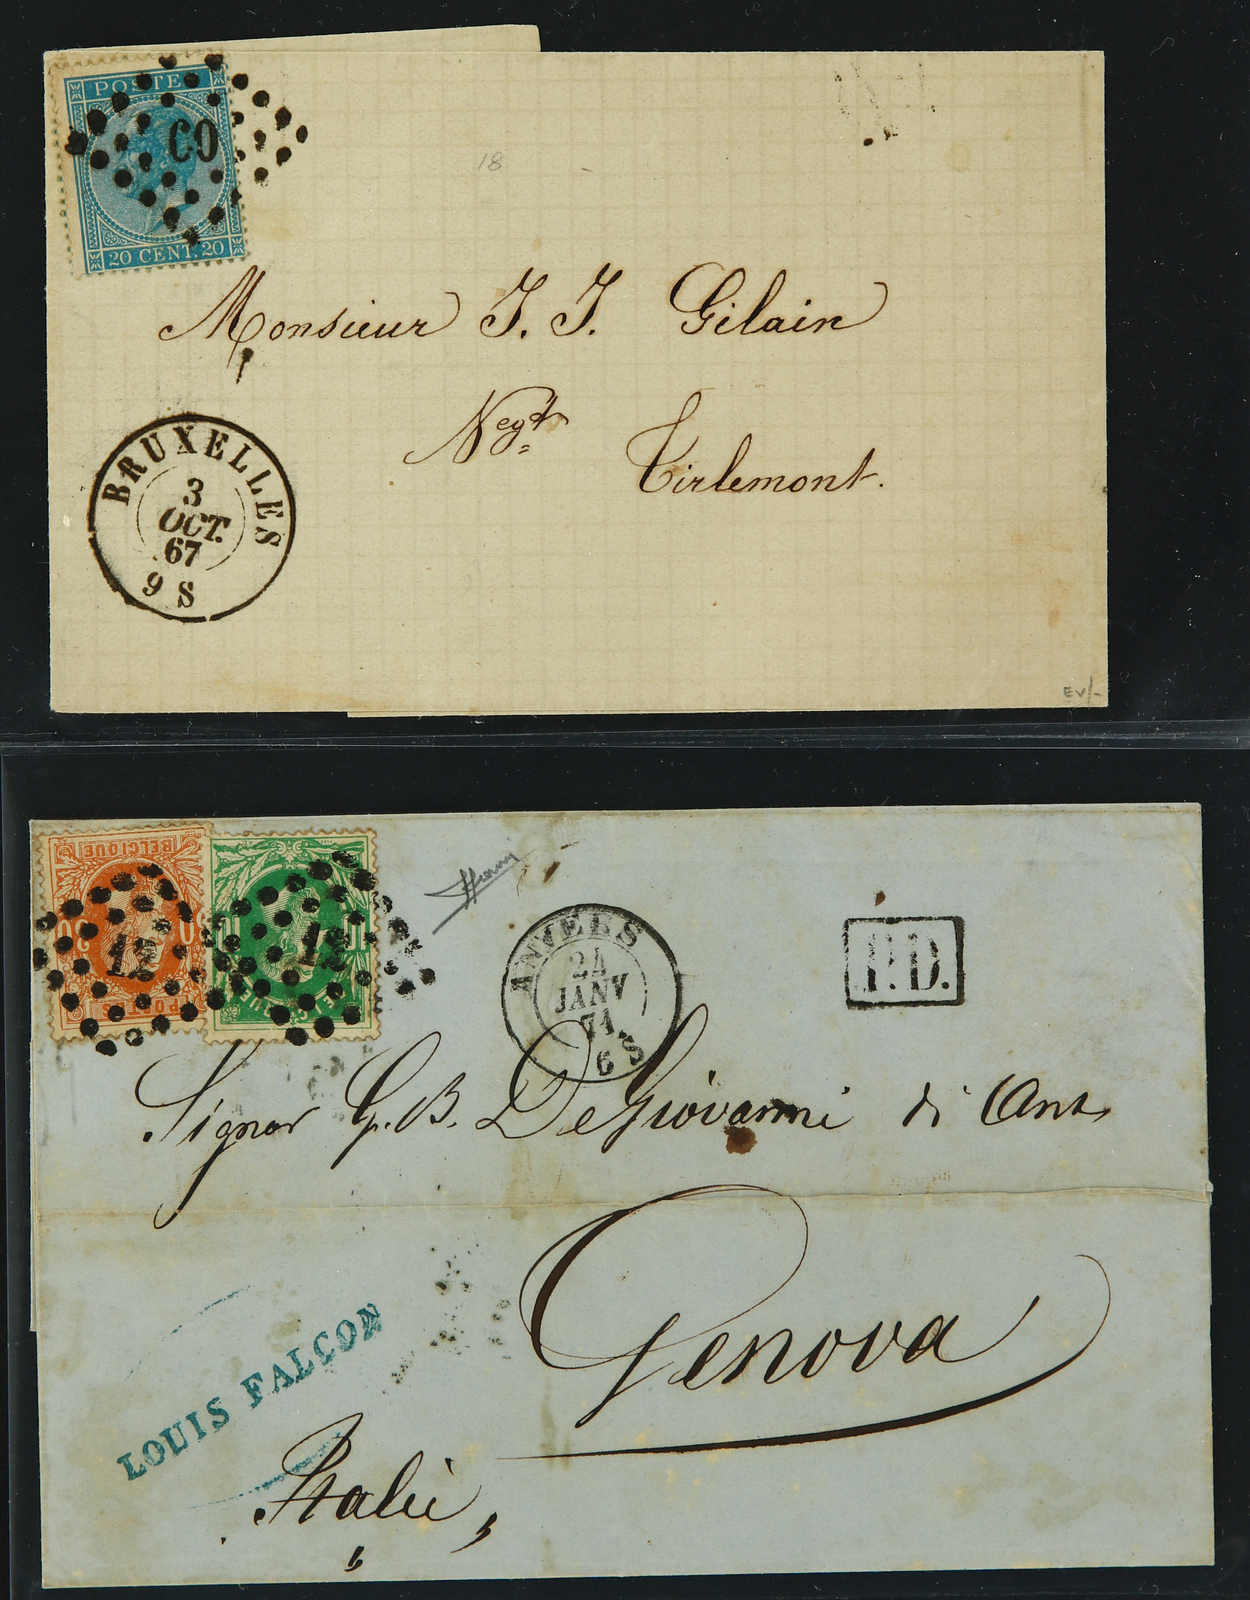 POSTE
60
20 CENT. 20
18
Monsieur J. J. Gilain
Negt
Tirlemont.
BRUXELLES
3
OCT.
67
9 S
EV/-
BELGIQUE
12
12
POSTES
ANVERS
24
JANV
71
6 S
P.D.
Signor G. B. DeGiovanni di Ant.
Genova
LOUIS FALCON
Italie,